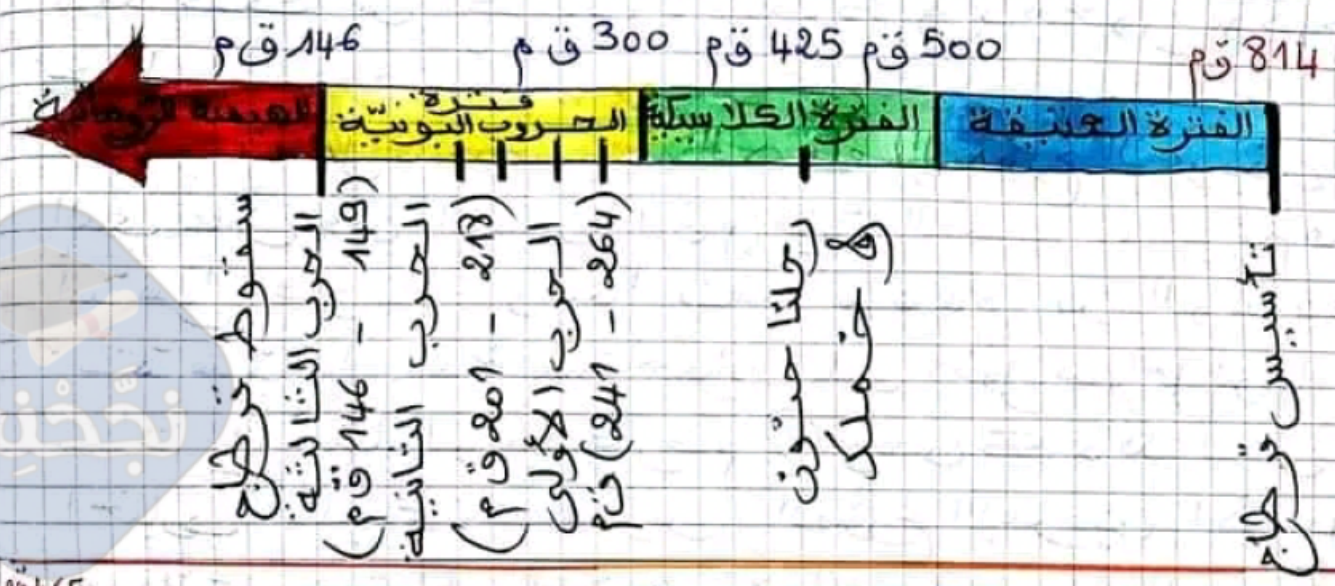 814 ق م
500 ق م
425 ق م
300 ق م
146 ق م
الفترة العتيقة
الفترة الكلاسيكية
فترة
الحروب البونيّة
الهيمنة الرومانية
تأسيس قرطاج
(رحلتا حنون
و خملك)
الحرب الأولى
(264 - 241) ق م
الحرب الثانية
(218 - 201 ق م)
الحرب الثالثة
(149 - 146 ق م)
سقوط قرطاج
نجّحْني